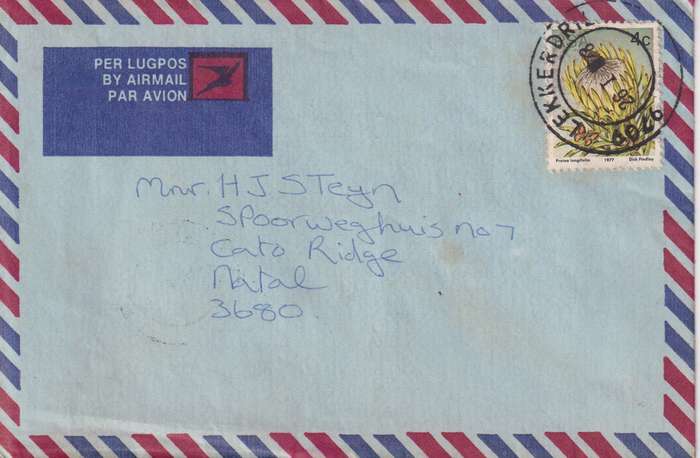 PER LUGPOS
BY AIRMAIL
PAR AVION
4c
Protea longifolia 1977 Dick Findlay
Mnr. H J STeyn
SPoorweghuis no 7
Cato Ridge
Natal
3680.